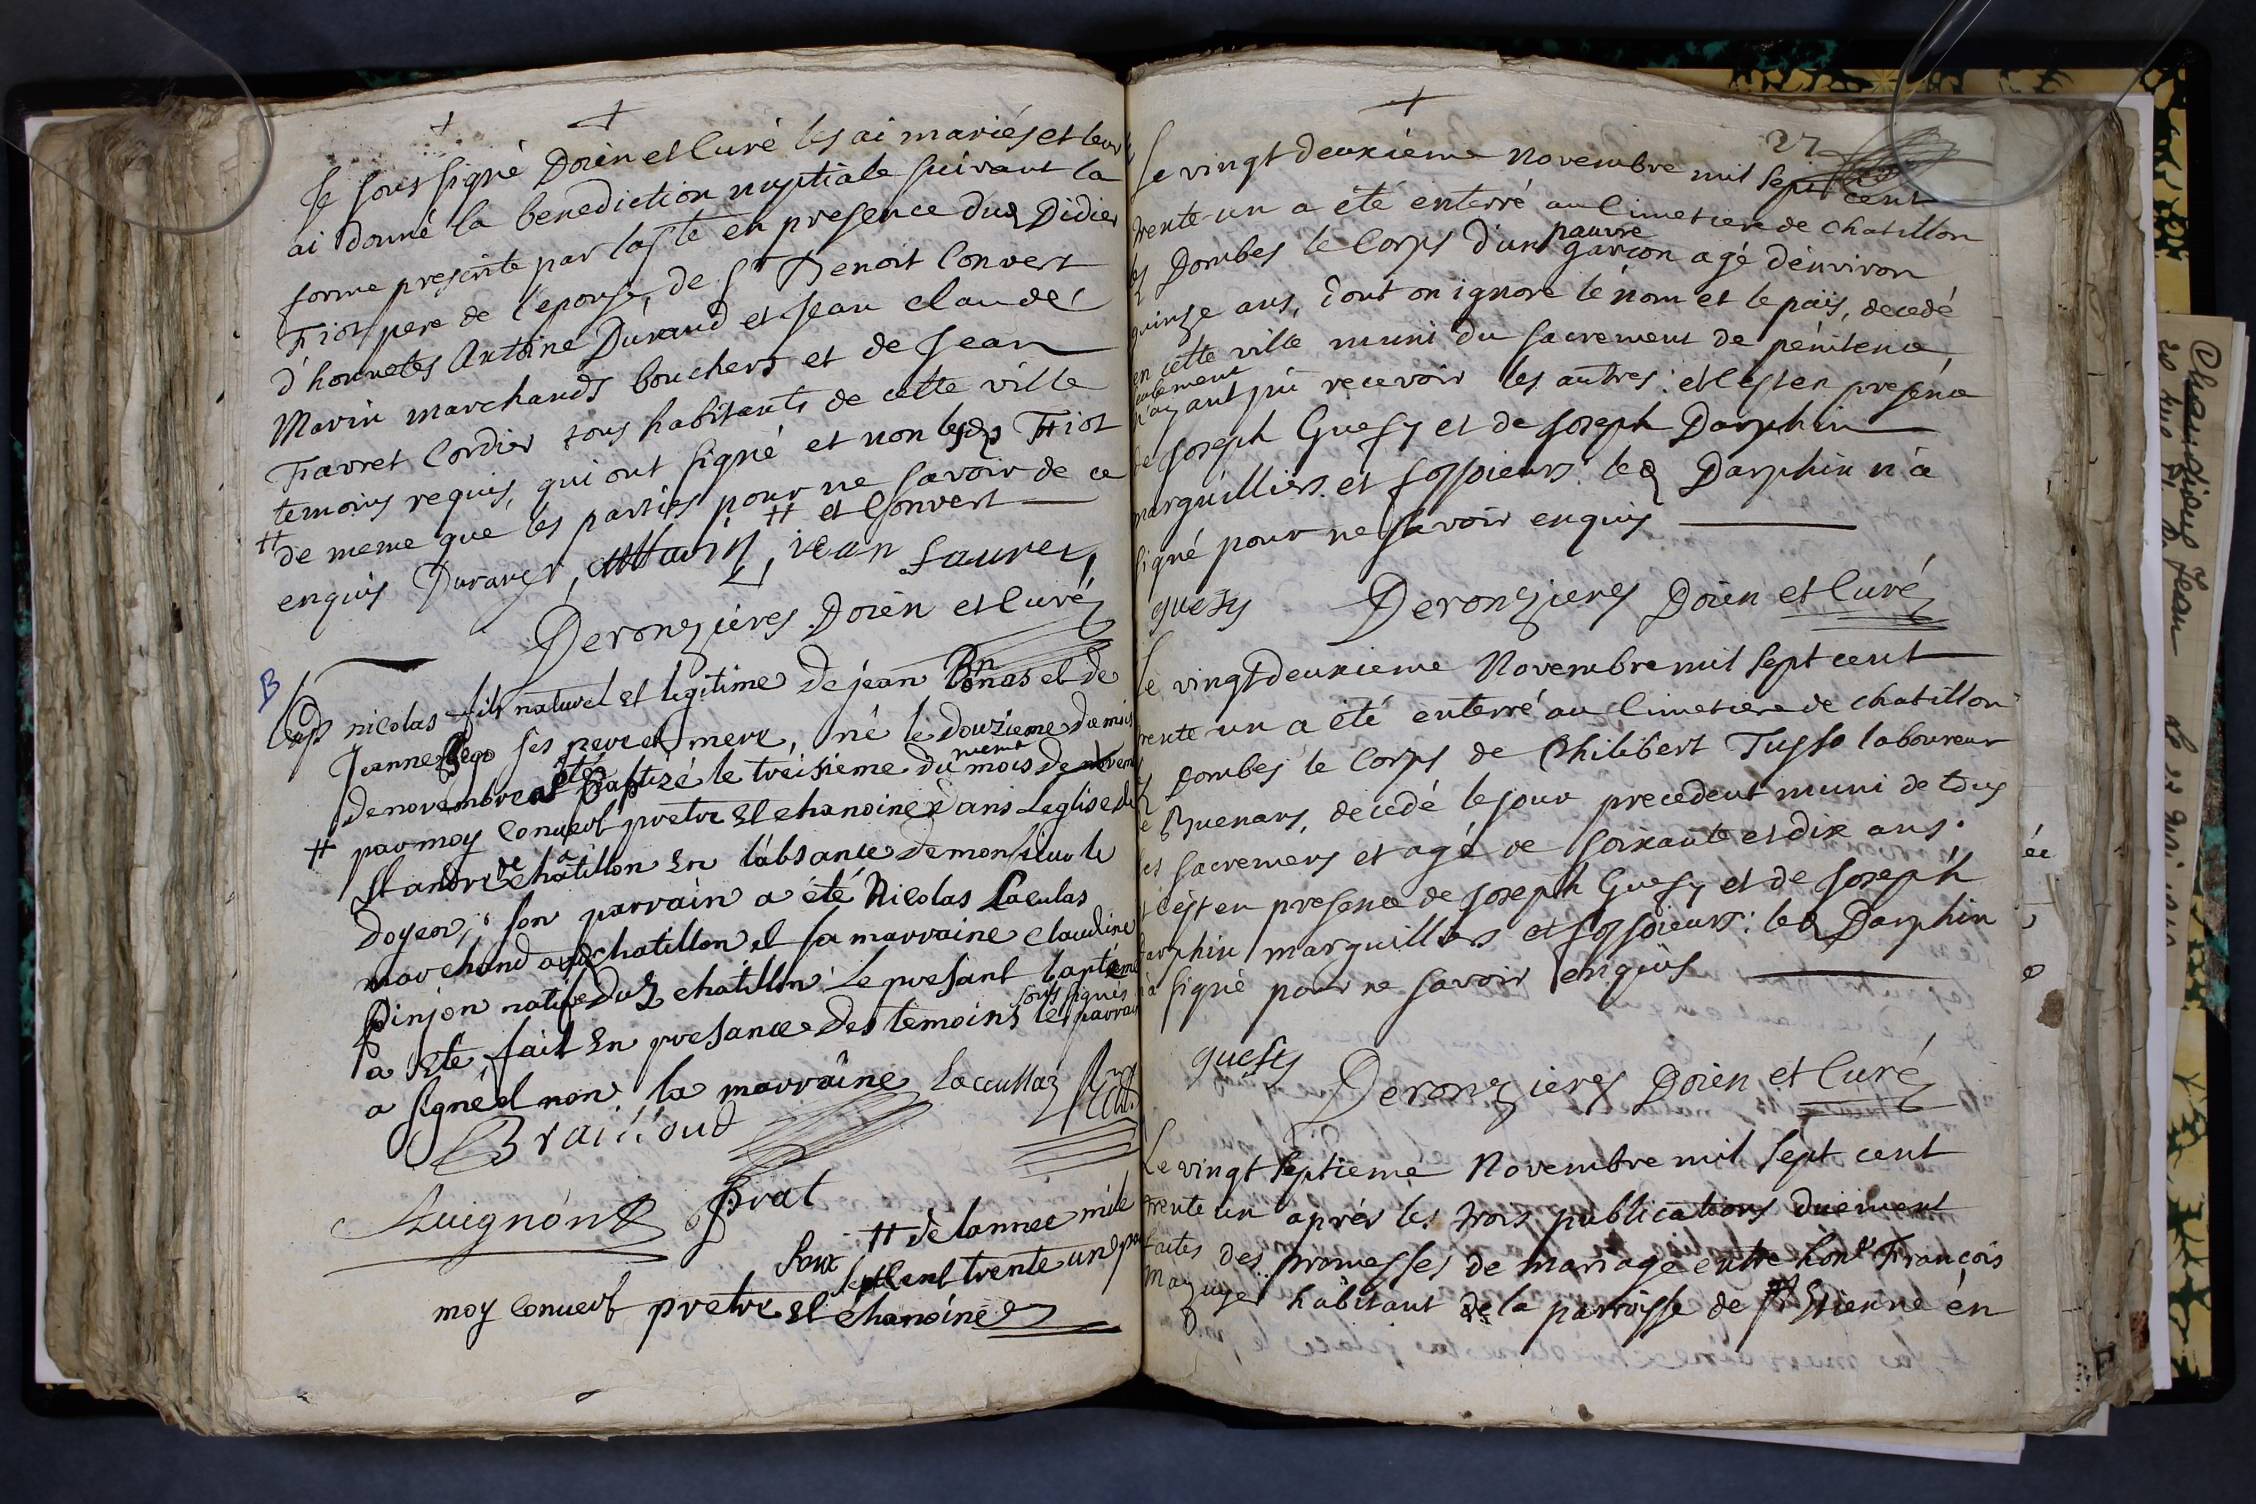 Je sous signé Doien et Curé les ai mariés et leur
ai donné la benediction nuptiale suivant la
forme prescrite par laste en presence dud Didier
Fiot pere de l'epouse, de Sr Benoit Convert
d'honnetes Antoine Durand et Jean claude
Marin marchands bouchers et de Jean
Favret Cordier tous habitants de cette ville
temoins requis, qui ont signé et non lesd Fiot
# de meme que les parties pour ne savoir de ce
enquis # et Convert
Durand, Marin, jean faures,
Deronzieres Doien et Curé
B
nicolas fils naturel et legitime de jean Bonas et de
Jeanne ses pere et mere, né le Douzieme du mois
de novembre a été Baptizé le treisieme du meme mois de novem
# par moy Convert pretre Et chanoine dans Leglise de
St andre de chatillon En l'absance de monsieur le
Doyen; son parrain a été Nicolas Laculas
marchand aud chatillon et sa marraine claudine
pinjon native dud chatillon Le presant baptême
a Ete fait En presance des temoins sous signés le parrain
a signé et non la marraine Laccullaz
Braillioud
Guignon prat
# de lannee mile
sept cent trente un
moy Convert pretre Et chanoine
27
Le vingt deuxiéme Novembre mil sept cent
trente-un a été enterré au Cimetiere de chatillon
les Dombes le Corps d'un pauvre garçon agé d'environ
quinze ans, dont on ignore le nom et le païs, decedé
en cette ville muni du sacrement de pénitence,
seulement
n'ayant pû recevoir les autres: et c'est en presence
de Joseph Guesy et de Joseph Darphin
marguilliers et fossoieurs: led Darphin n'a
signé pour ne savoir enquis
guesy Deronzieres Doien et Curé
Le vingt deuxieme Novembre mil sept cent
trente un a été enterré au Cimetiere de chatillon
les Dombes le Corps de Philibert Tusso laboureur
de Buenans, decedé le jour precedent muni de tous
les sacremens et agé de soixante et dix ans.
et c'est en presence de Joseph Guesy et de Joseph
Darphin marguilliers et fossoieurs: led Darphin
n'a signé pour ne savoir enquis
guesty
Deronzieres Doien et Curé
Le vingt septieme Novembre mil sept cent
trente un aprés les trois publications duement
faites des promesses de mariage entre hont François
Mazuyer habitant de la parroisse de St Etienne en